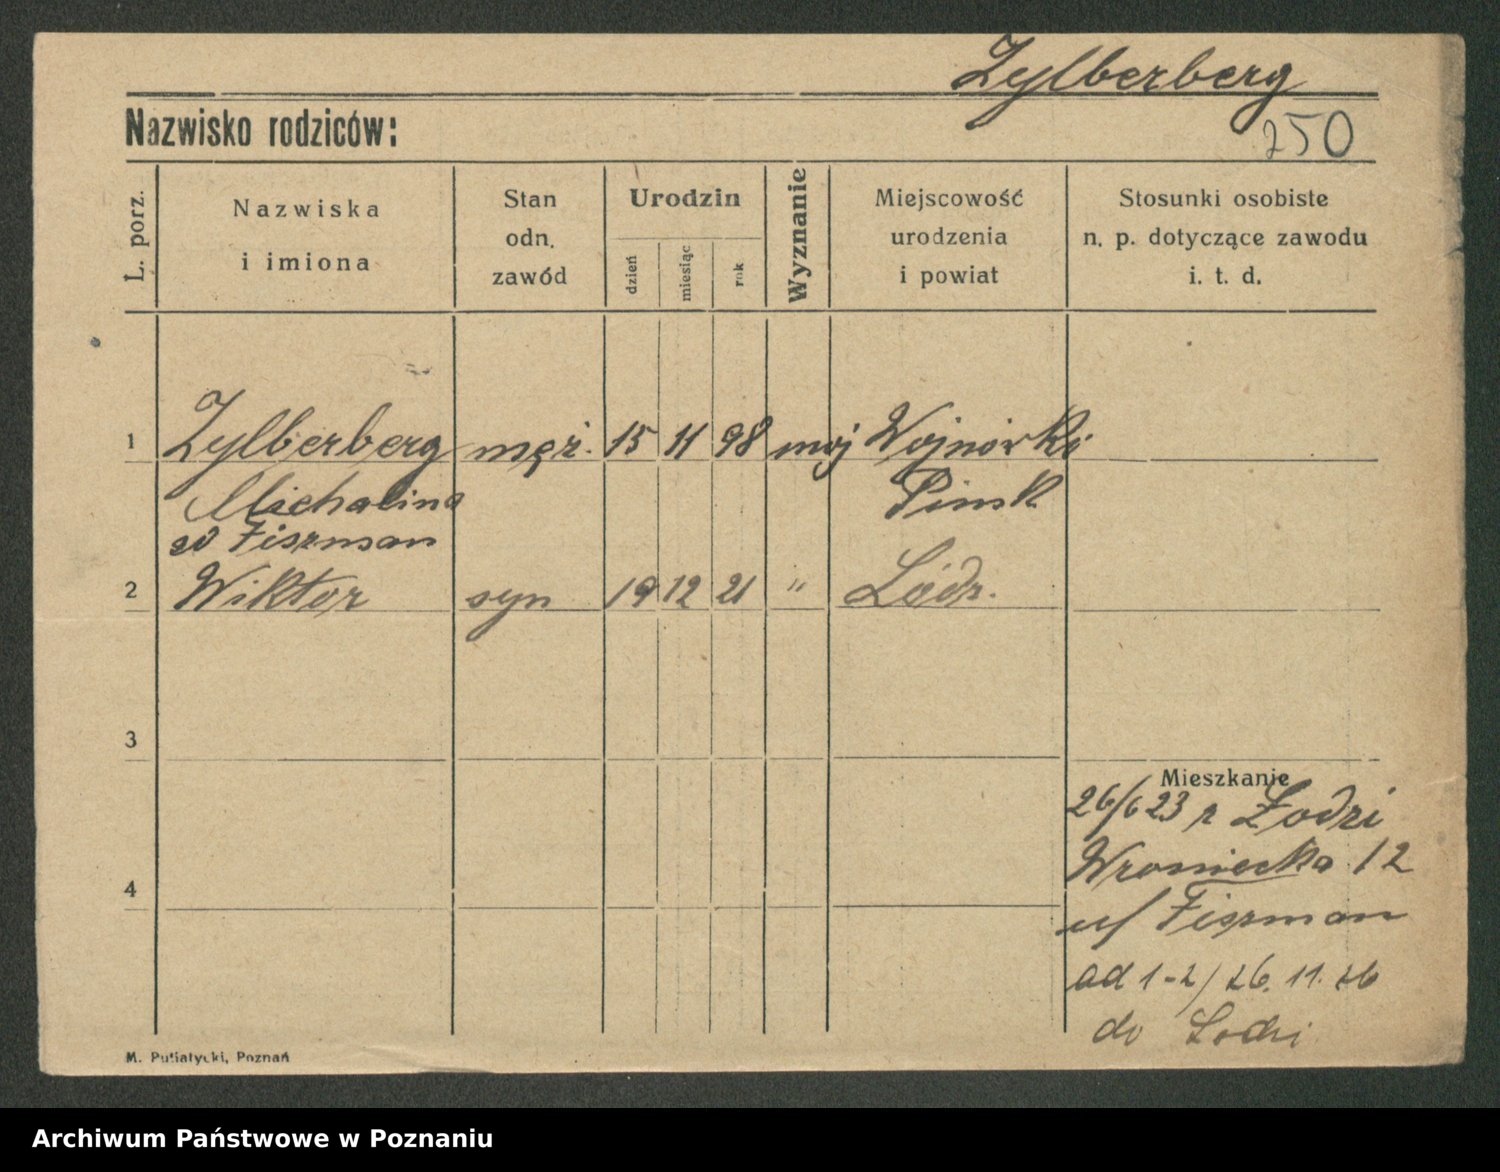 Zylberberg
Nazwisko rodziców:
250
L. porz.
Nazwiska
i imiona
Stan
odn.
zawód
Urodzin
dzień
miesiąc
rok
Wyznanie
Miejscowość
urodzenia
i powiat
Stosunki osobiste
n. p. dotyczące zawodu
i. t. d.
1 Zylberberg męż. 15 11 98 moj Wojnówki
Michalina Pinsk
Fiszman
2 Wiktor syn 19 12 21 " Łódz.
3
Mieszkanie
26/6 23 z Łodzi
Wroniecka 12
4
u/ Fiszman
ad 1-2/ 26. 11. 26
do Łodzi
M. Putiatycki, Poznań
Archiwum Państwowe w Poznaniu